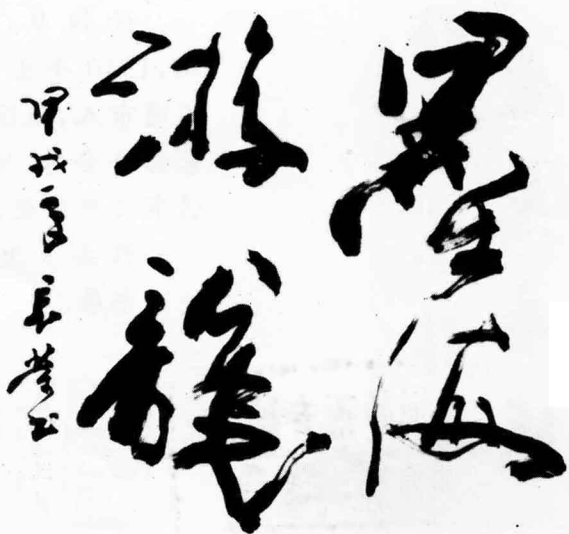 墨海
游龍
甲戌夏 书